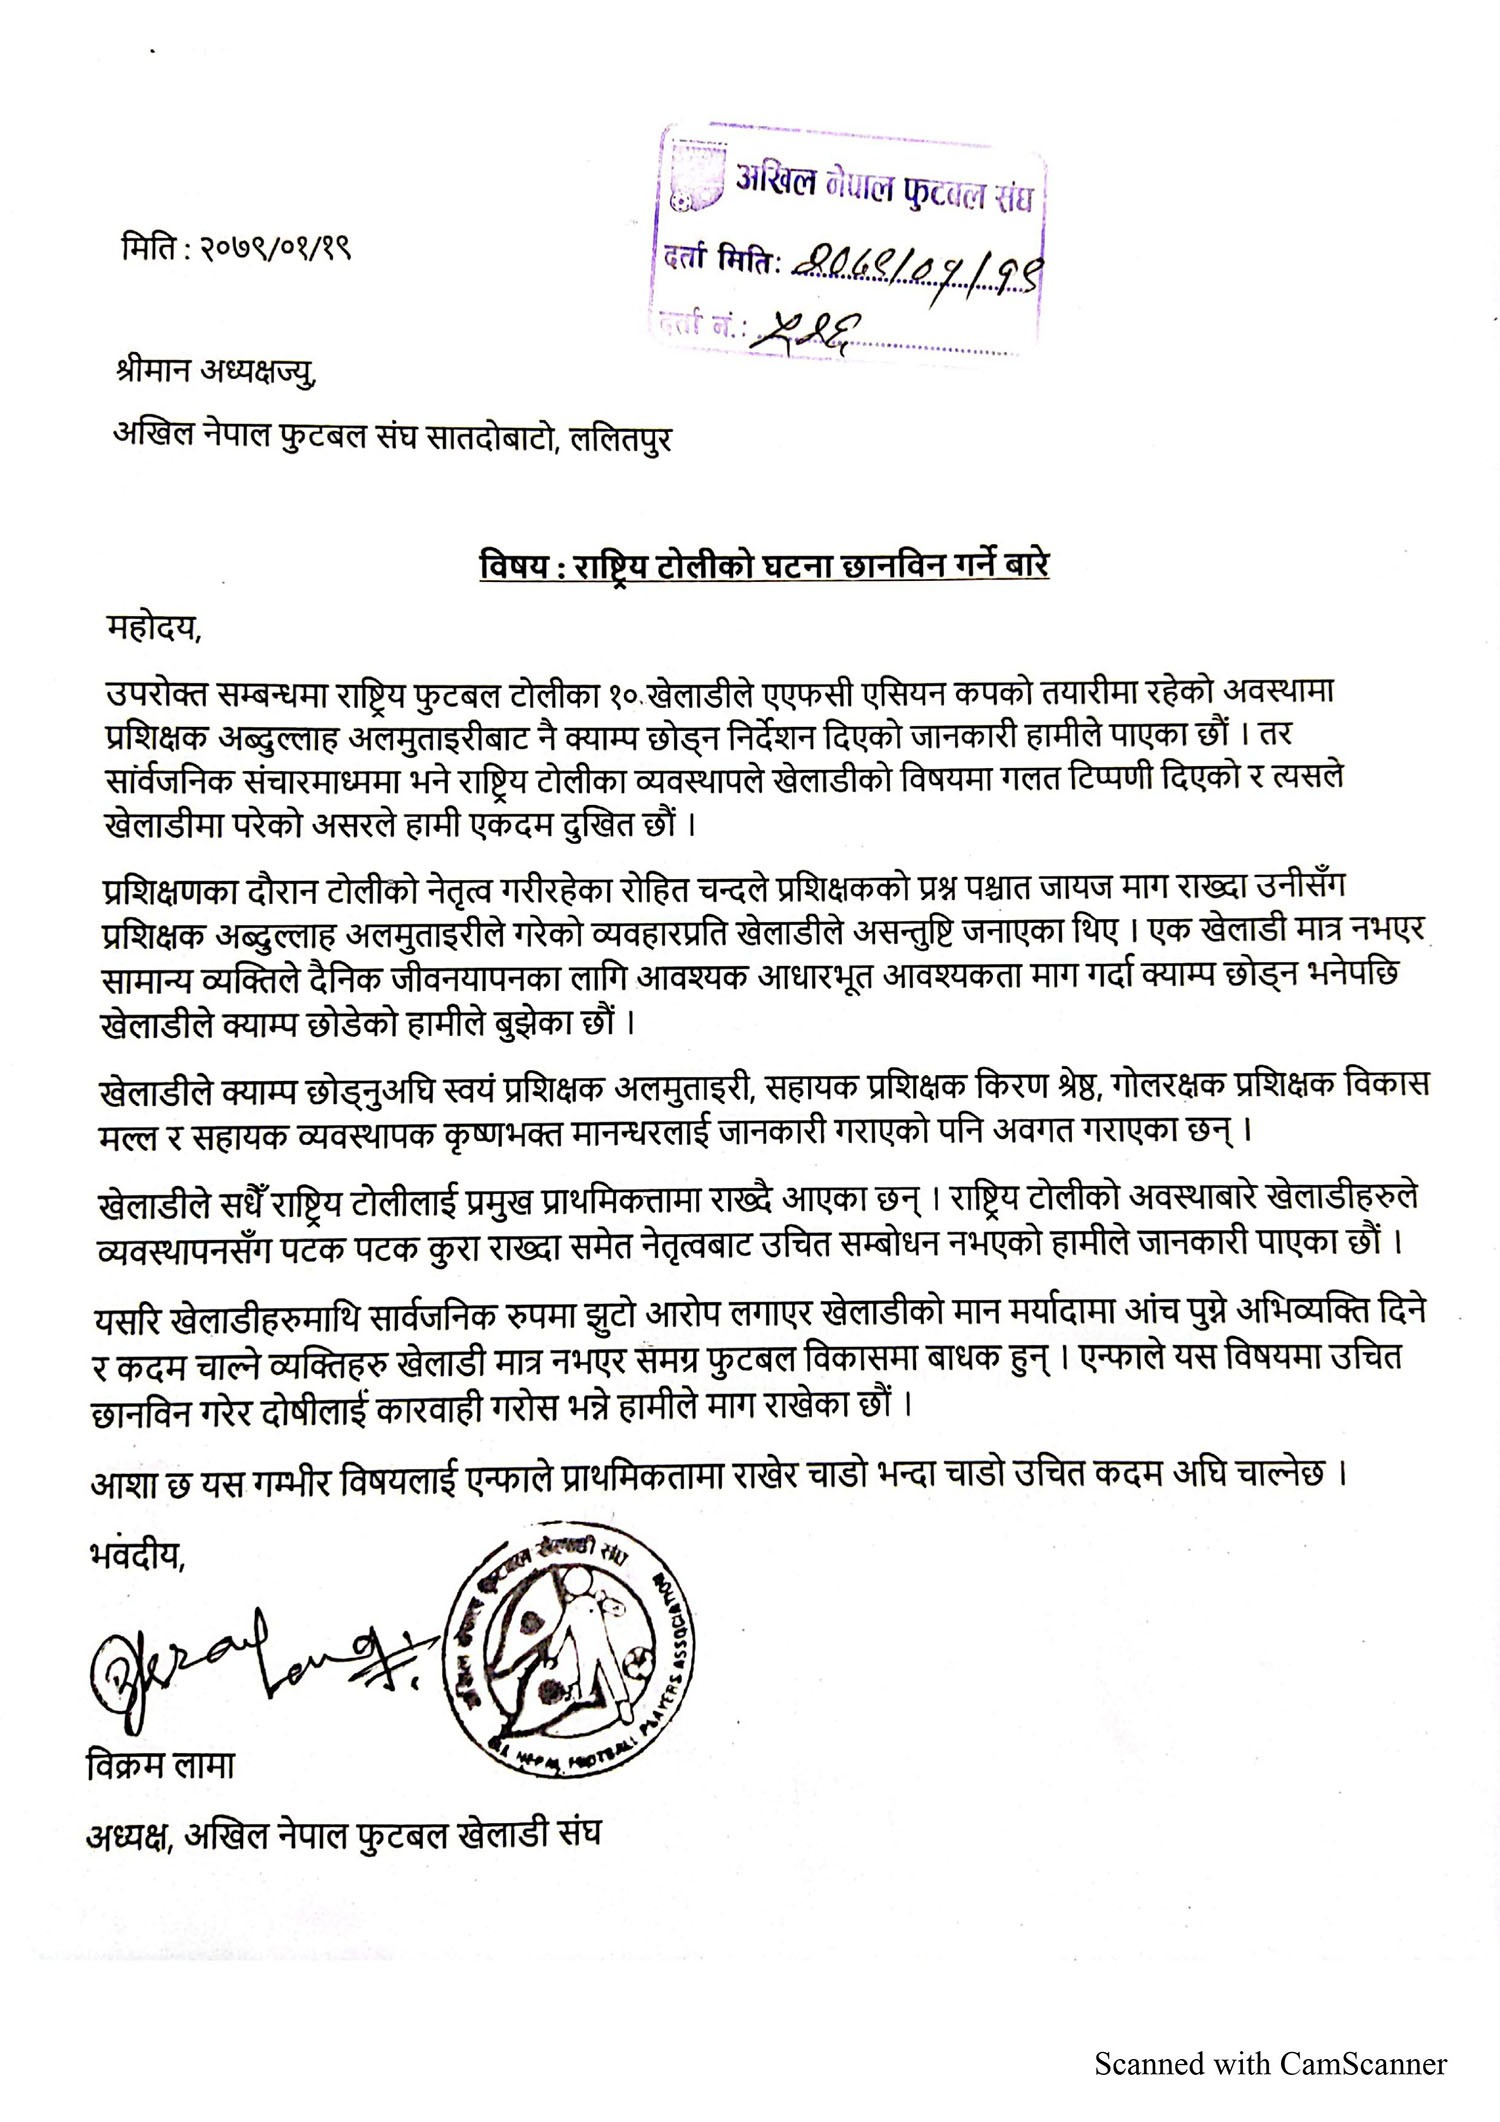 अखिल नेपाल फुटबल संघ
दर्ता मितिः २०७९/०१/१९
दर्ता नं.: ५२६
मिति : २०७९/०१/१९
श्रीमान अध्यक्षज्यु,
अखिल नेपाल फुटबल संघ सातदोबाटो, ललितपुर
विषय : राष्ट्रिय टोलीको घटना छानविन गर्ने बारे
महोदय,
उपरोक्त सम्बन्धमा राष्ट्रिय फुटबल टोलीका १० खेलाडीले एएफसी एसियन कपको तयारीमा रहेको अवस्थामा
प्रशिक्षक अब्दुल्लाह अलमुताइरीबाट नै क्याम्प छोड्न निर्देशन दिएको जानकारी हामीले पाएका छौं । तर
सार्वजनिक संचारमाध्यममा भने राष्ट्रिय टोलीका व्यवस्थापले खेलाडीको विषयमा गलत टिप्पणी दिएको र त्यसले
खेलाडीमा परेको असरले हामी एकदम दुखित छौं ।
प्रशिक्षणका दौरान टोलीको नेतृत्व गरीरहेका रोहित चन्दले प्रशिक्षकको प्रश्न पश्चात जायज माग राख्दा उनीसँग
प्रशिक्षक अब्दुल्लाह अलमुताइरीले गरेको व्यवहारप्रति खेलाडीले असन्तुष्टि जनाएका थिए । एक खेलाडी मात्र नभएर
सामान्य व्यक्तिले दैनिक जीवनयापनका लागि आवश्यक आधारभूत आवश्यकता माग गर्दा क्याम्प छोड्न भनेपछि
खेलाडीले क्याम्प छोडेको हामीले बुझेका छौं ।
खेलाडीले क्याम्प छोड्नुअघि स्वयं प्रशिक्षक अलमुताइरी, सहायक प्रशिक्षक किरण श्रेष्ठ, गोलरक्षक प्रशिक्षक विकास
मल्ल र सहायक व्यवस्थापक कृष्णभक्त मानन्धरलाई जानकारी गराएको पनि अवगत गराएका छन् ।
खेलाडीले सधैँ राष्ट्रिय टोलीलाई प्रमुख प्राथमिकत्तामा राख्दै आएका छन् । राष्ट्रिय टोलीको अवस्थाबारे खेलाडीहरुले
व्यवस्थापनसँग पटक पटक कुरा राख्दा समेत नेतृत्वबाट उचित सम्बोधन नभएको हामीले जानकारी पाएका छौं ।
यसरि खेलाडीहरुमाथि सार्वजनिक रुपमा झुटो आरोप लगाएर खेलाडीको मान मर्यादामा आंच पुग्ने अभिव्यक्ति दिने
र कदम चाल्ने व्यक्तिहरु खेलाडी मात्र नभएर समग्र फुटबल विकासमा बाधक हुन् । एन्फाले यस विषयमा उचित
छानविन गरेर दोषीलाई कारवाही गरोस भन्ने हामीले माग राखेका छौं ।
आशा छ यस गम्भीर विषयलाई एन्फाले प्राथमिकतामा राखेर चाडो भन्दा चाडो उचित कदम अघि चाल्नेछ ।
भवदीय,
अखिल नेपाल फुटबल खेलाडी संघ
ALL NEPAL FOOTBALL PLAYERS ASSOCIATION
विक्रम लामा
अध्यक्ष, अखिल नेपाल फुटबल खेलाडी संघ
Scanned with CamScanner